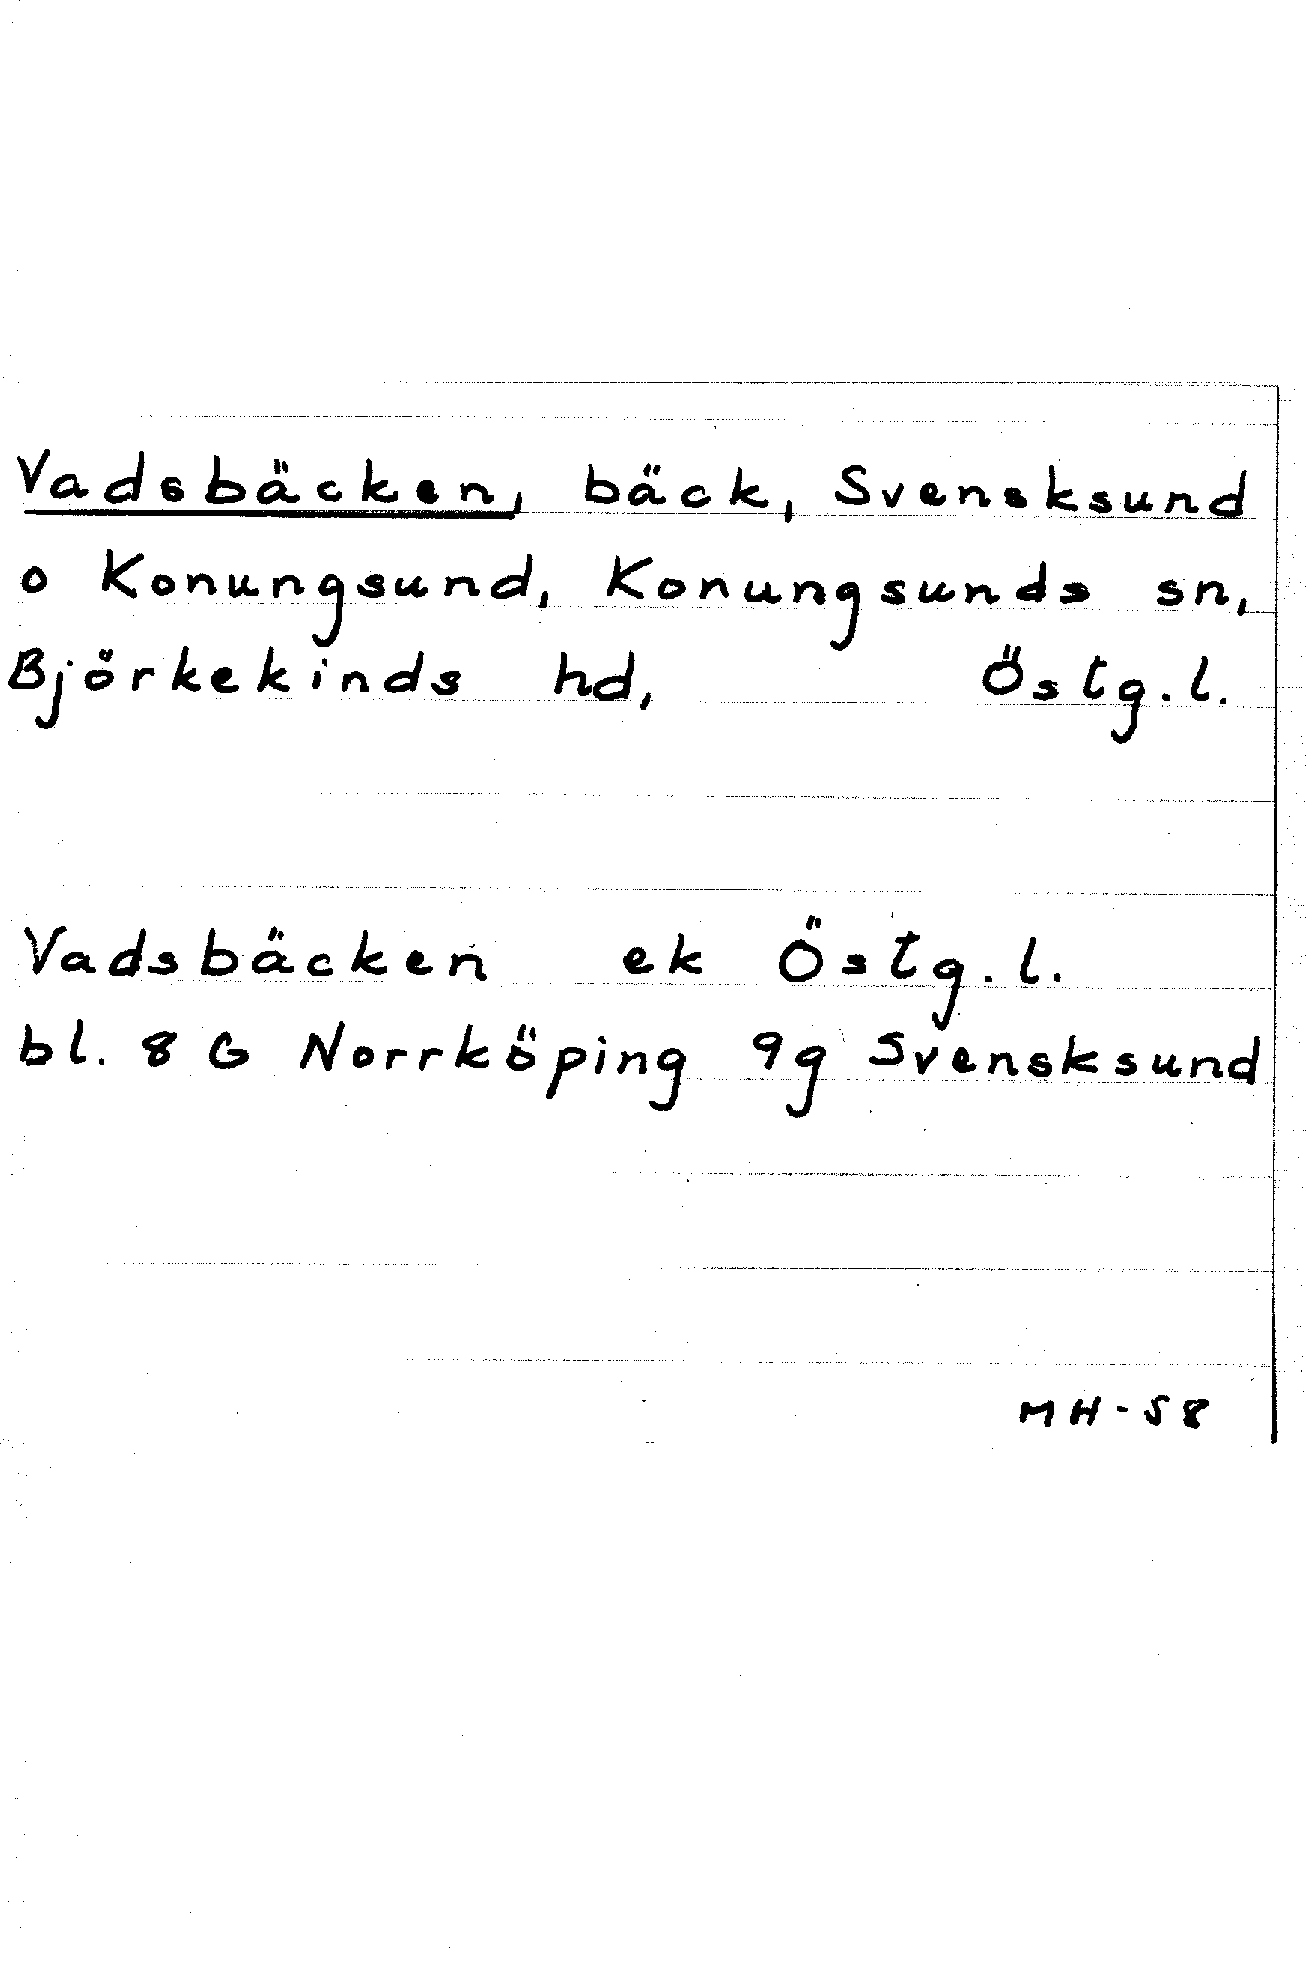 Vadsbäcken, bäck, Svensksund
o Konungsund, Konungsunds sn,
Björkekinds hd, Östg.l.
Vadsbäcken ek Östg.l.
bl. 8 G Norrköping 9g Svensksund
MH-58